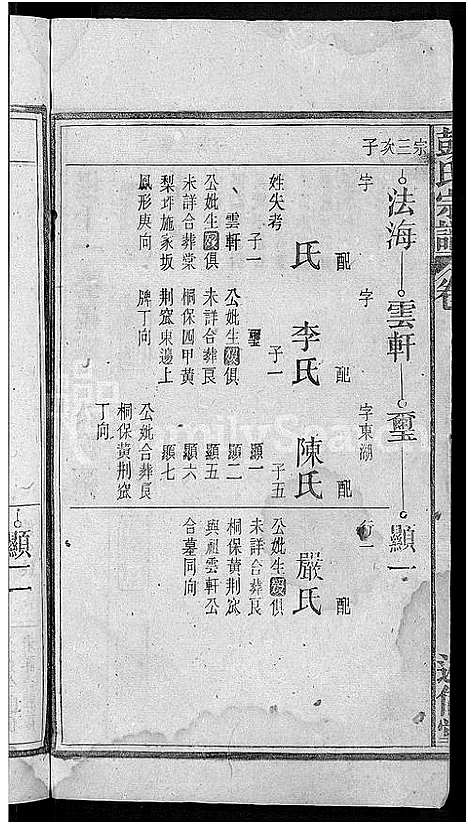 彭氏宗譜
卷
宗三亥子
法海
雲軒
璽
顯一
字
配
氏
姓失考
子一
雲軒
公妣生歿俱
未詳合葬棠
梨坪施家坂
鳳形庚向
字
配
李氏
子一
璽
公妣生歿俱
未詳合葬良
桐保四甲黄
荆窊東邊上
牌丁向
字東湖
配
陳氏
子五
顯一
顯二
顯五
顯六
顯七
公妣合葬良
桐保黄荆窊
丁向
行一
配
嚴氏
公妣生歿俱
未詳合葬良
桐保黄荆窊
與祖雲軒公
合墓同向
顯一
FamilySearch